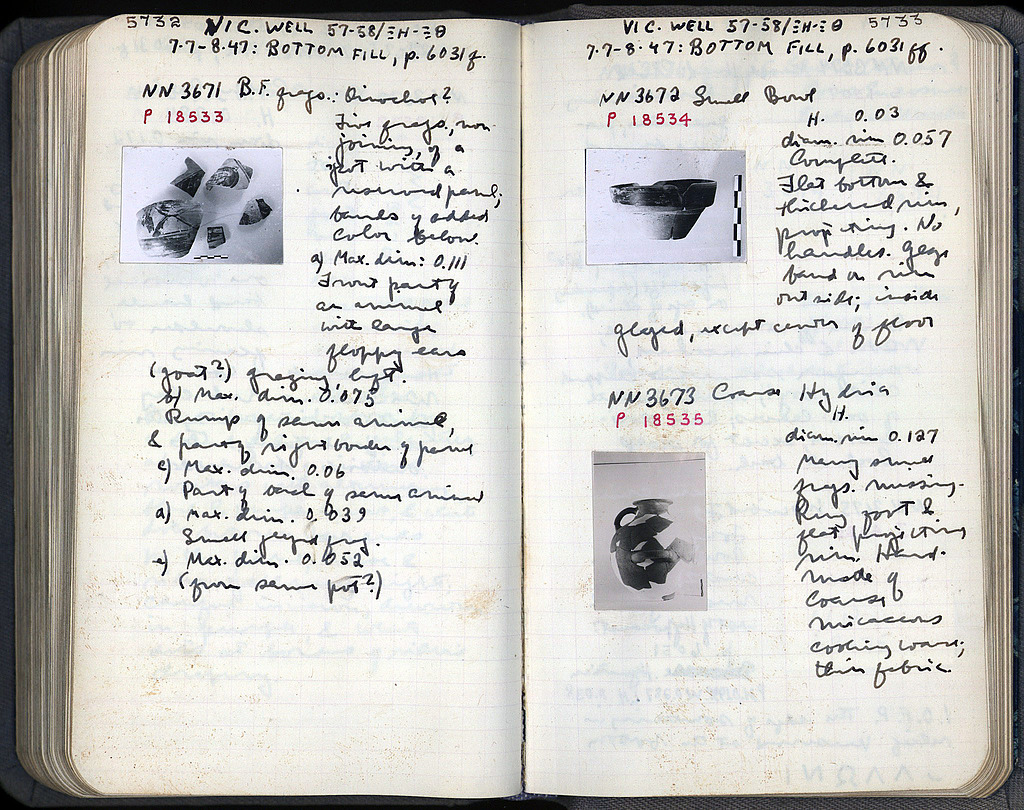 5732
VIC. WELL 57-58/ΞΗ-ΞΘ
7-7-8-47: BOTTOM FILL, p. 6031 f.
NN 3671 B.F. frags.: Oinochoe?
P 18533
Five frags., non-
joining, of a
pot with a
reserved panel;
bands of added
color below.
a) Max. dim: 0.111
Front part of
an animal
with large
floppy ears
(goat?) grazing, left.
b) Max. dim. 0.075
Rump of same animal,
& part of right border of panel
c) Max. dim. 0.06
Part of back of same animal
d) Max. dim. 0.039
Small glazed frag.
e) Max. dim. 0.052
(from same pot?)
VIC. WELL 57-58/ΞΗ-ΞΘ 5733
7-7-8-47: BOTTOM FILL, p. 6031 ff.
NN 3672 Small Bowl
P 18534
H. 0.03
diam. rim 0.057
Complete.
Flat bottom &
thickened rim,
projecting. No
handles. Glaze
band on rim
outside; inside
glazed, except center of floor
NN 3673 Coarse Hydria
P 18535
H.
diam. rim 0.127
Many small
frags. missing.
Ring foot &
flat projecting
rim. Hand-
made of
coarse
micaceous
cooking ware;
thin fabric.